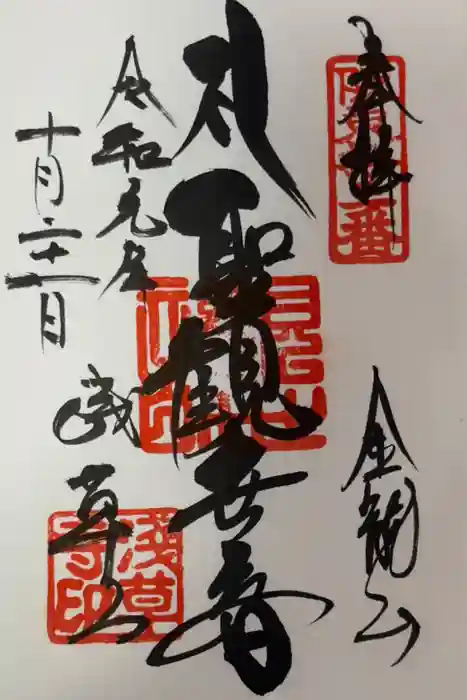 奉拝
坂東十三番
金龍山
礼聖観世音
令和元年
十月二十一日
浅草寺
浅草寺印